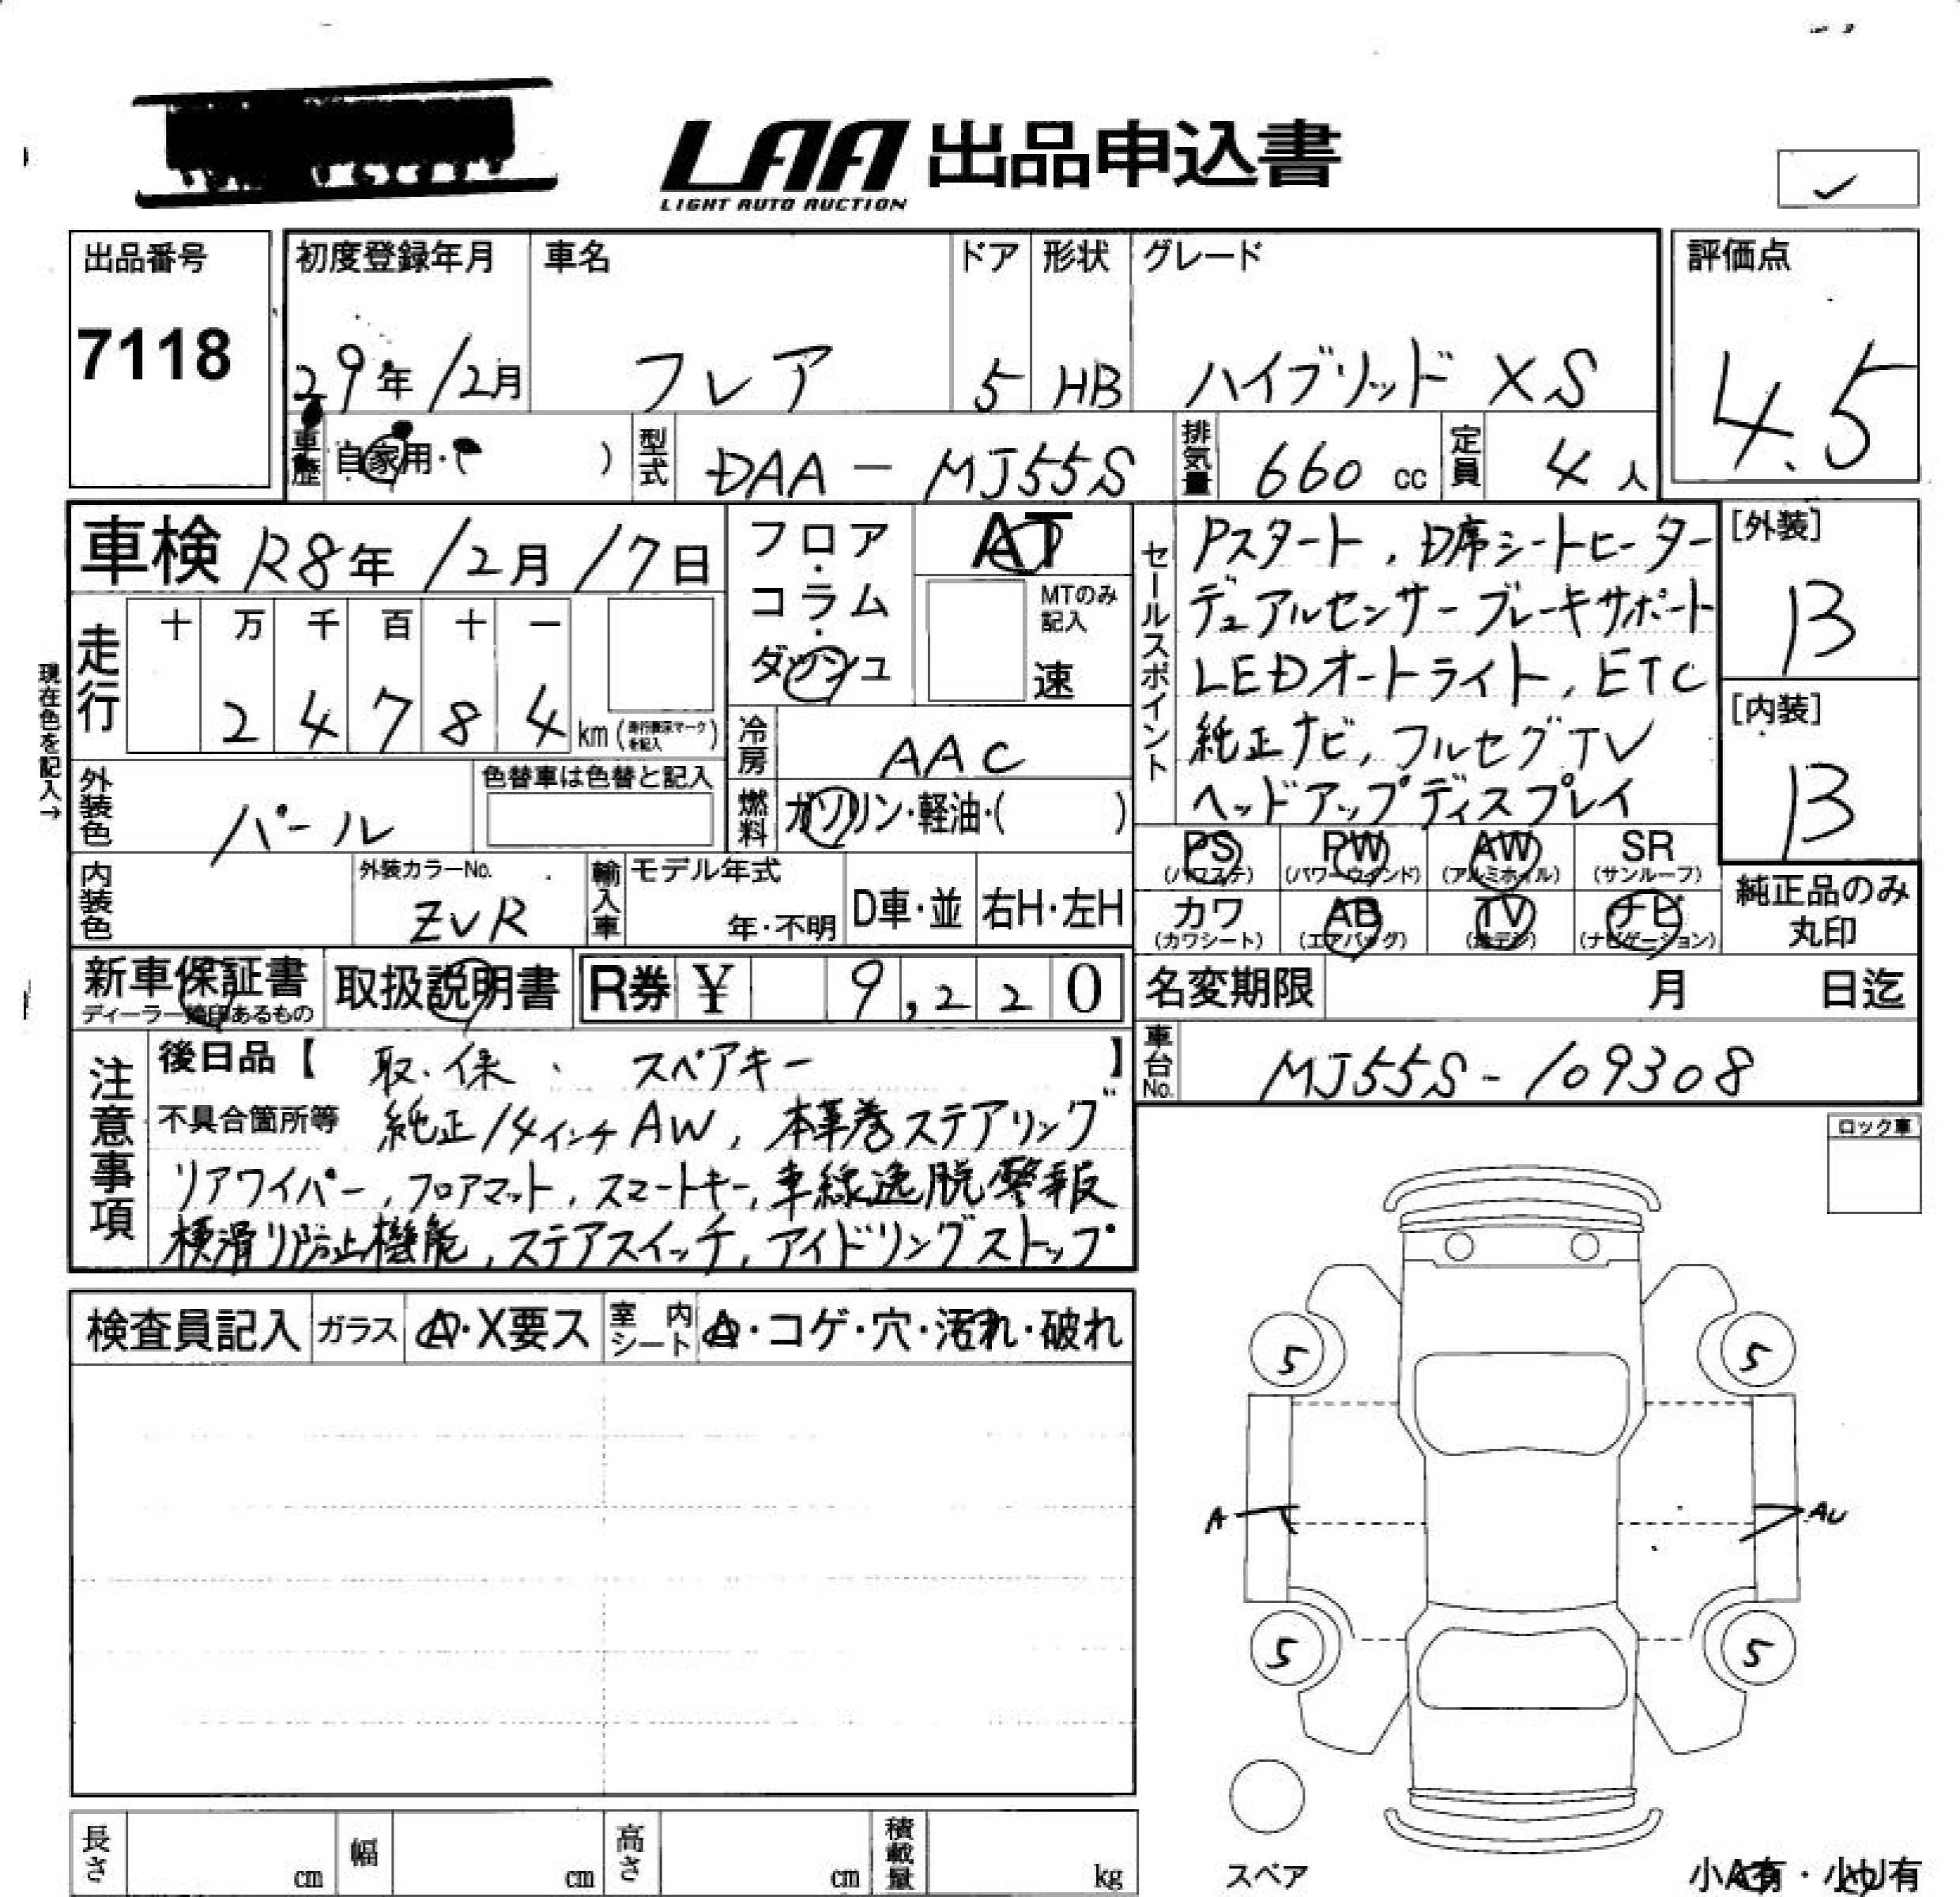 LAA 出品申込書
LIGHT AUTO AUCTION
出品番号
7118
初度登録年月 車名 ドア 形状 グレード
29年 12月 フレア 5 HB ハイブリッド XS
評価点
4.5
車歴 自家用・ ) 型式 DAA - MJ55S 排気量 660 cc 定員 4 人
車検 R8年 12月 17日
フロア・コラム・ダッシュ
AT
MTのみ記入
速
走行 十 万 千 百 十 一
2 4 7 8 4 km (走行表示マークを記入)
現在色を記入→
外装色 パール
色替車は色替と記入
冷房 AAC
燃料 ガソリン・軽油・( )
内装色
外装カラーNo.
ZVR
輸入車 モデル年式
年・不明 D車・並 右H・左H
セールスポイント
Pスタート, D席シートヒーター
デュアルセンサーブレーキサポート
LEDオートライト, ETC
純正ナビ, フルセグTV
ヘッドアップディスプレイ
[外装]
B
[内装]
B
PS PW AW SR
(パワステ) (パワーウインド) (アルミホイル) (サンルーフ)
カワ AB TV ナビ
(カワシート) (エアバッグ) (地デジ) (ナビゲーション)
純正品のみ
丸印
新車保証書
ディーラー捺印あるもの
取扱説明書
R券 ¥ 9,220
名変期限 月 日迄
車台No. MJ55S-109308
注意事項
後日品【 取・保、 スペアキー 】
不具合箇所等 純正14インチAW, 本革巻ステアリング
リアワイパー, フロアマット, スマートキー, 車線逸脱警報
横滑り防止機能, ステアスイッチ, アイドリングストップ
ロック車
検査員記入 ガラス A・X要ス 室内シート A・コゲ・穴・汚れ・破れ
5 5
A AU
5 5
スペア
小A有・小U有
長さ cm 幅 cm 高さ cm 積載量 kg